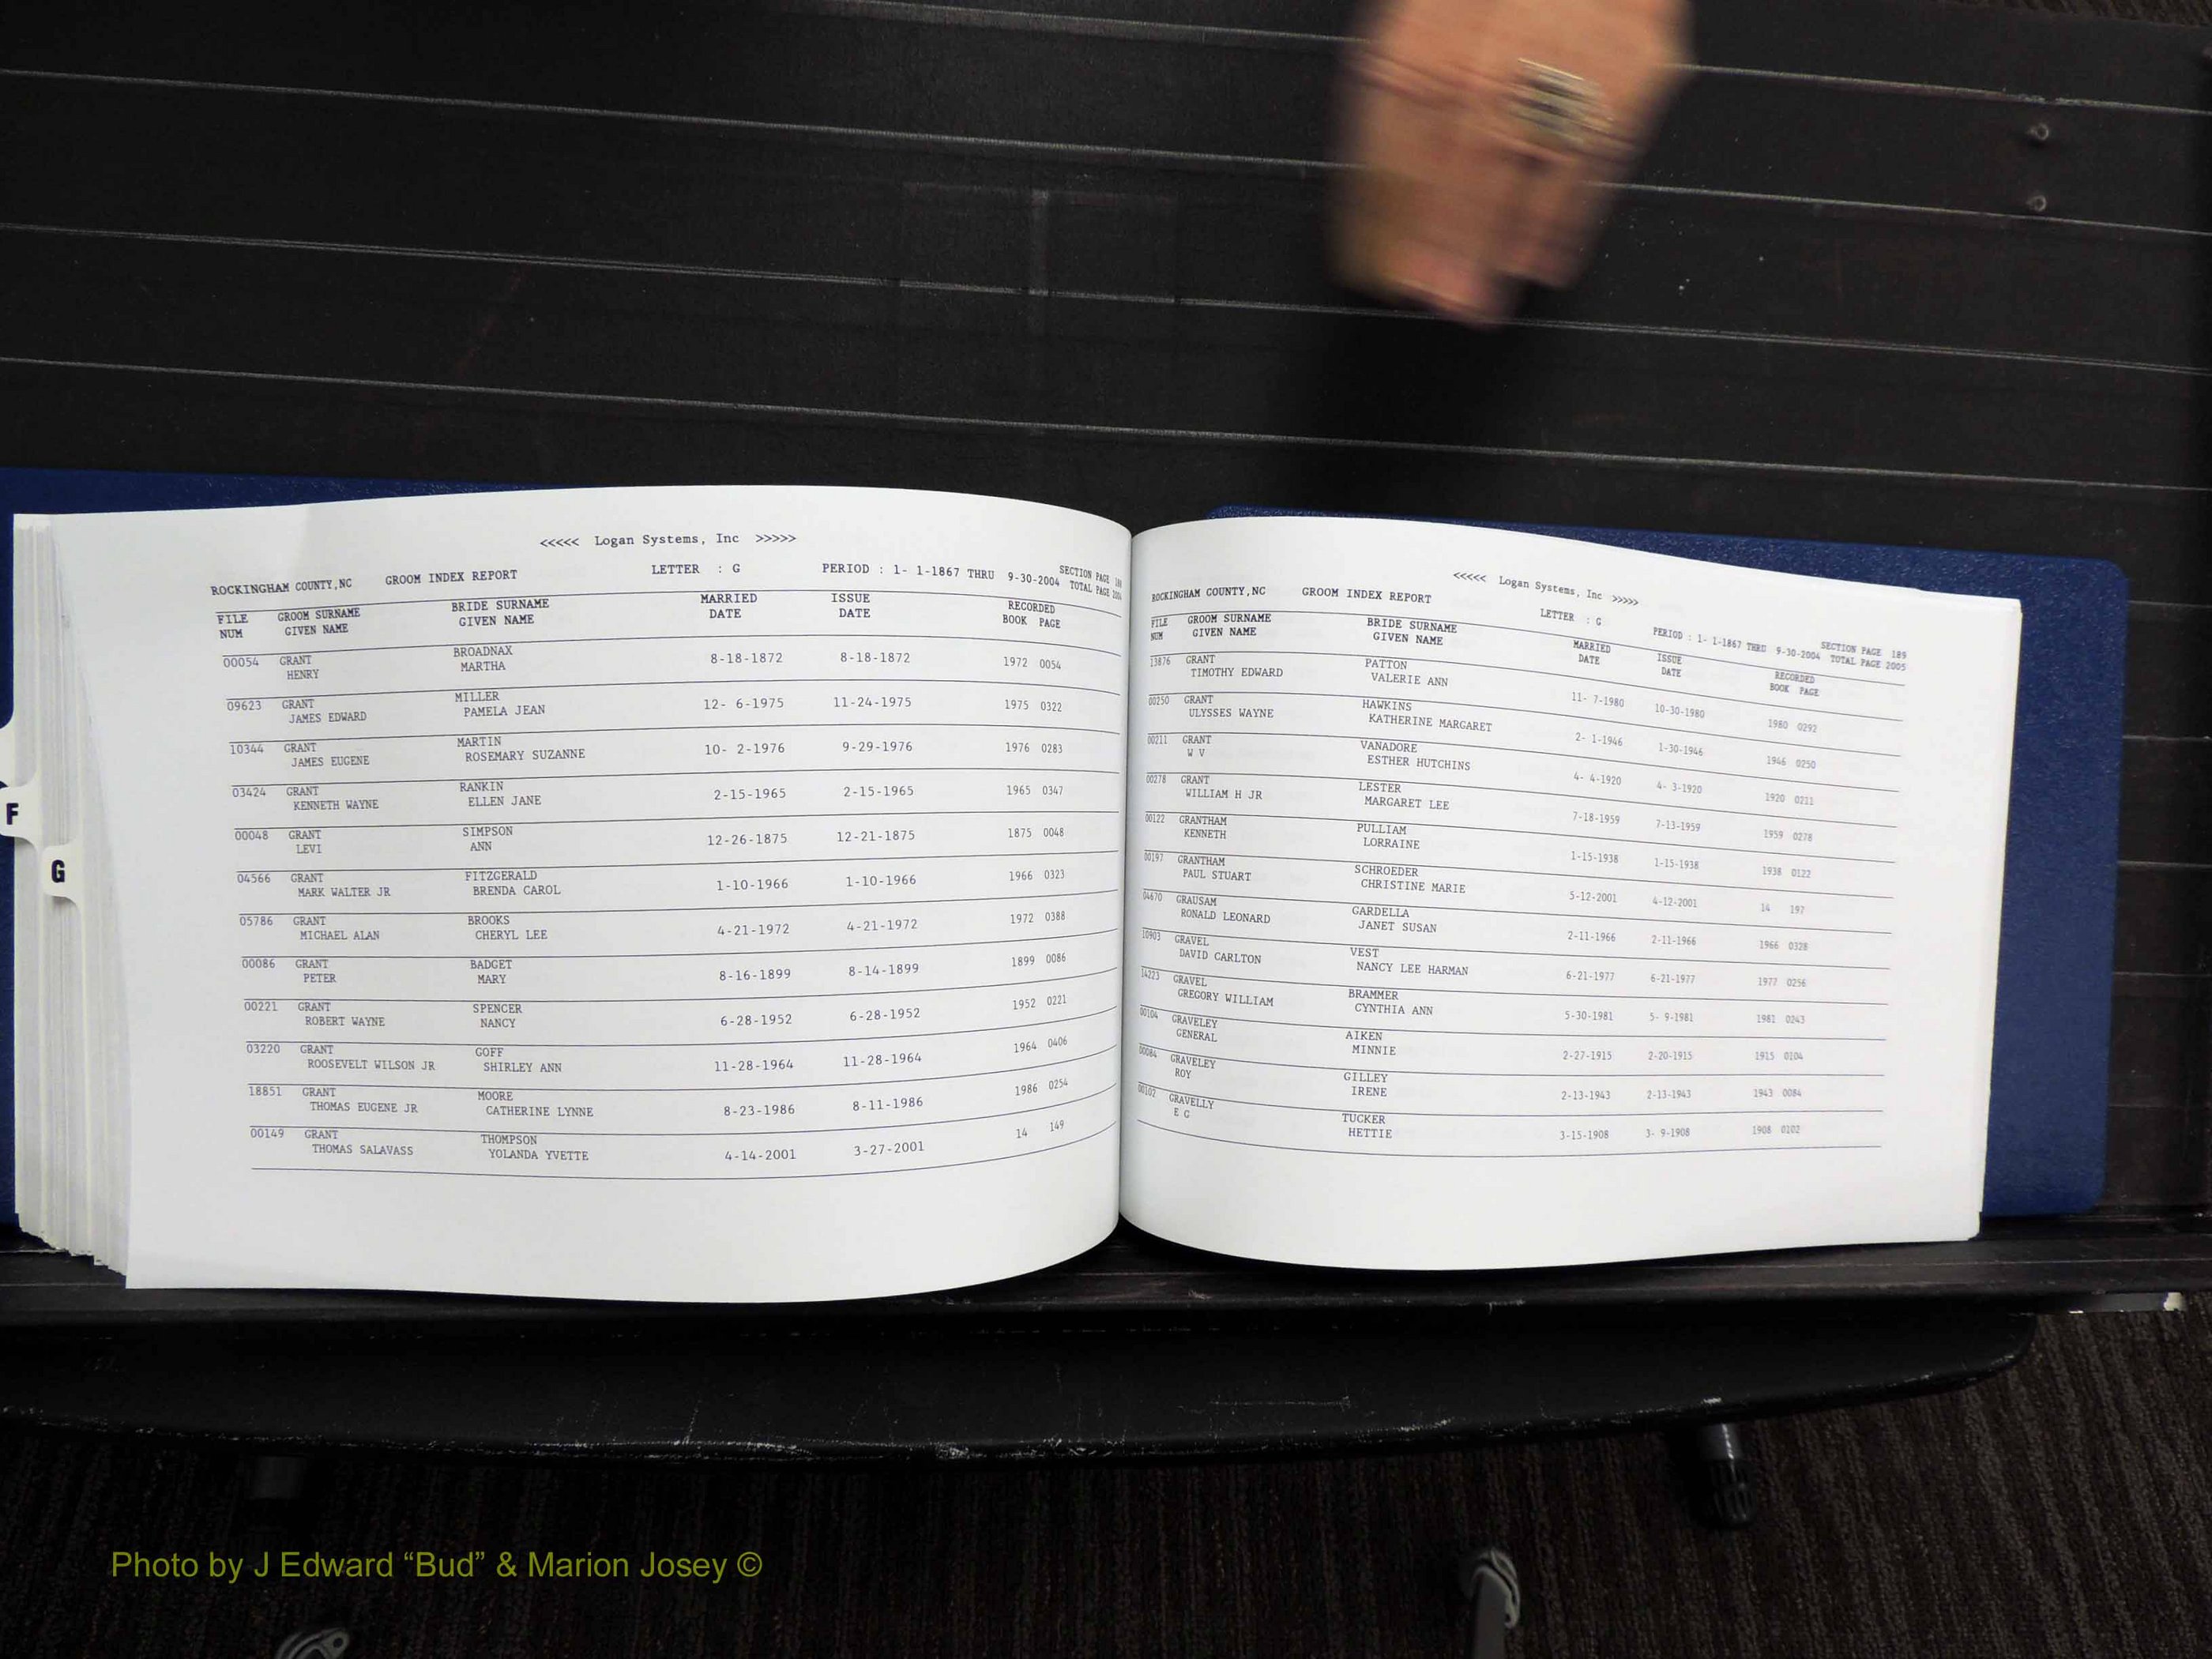 <<<<< Logan Systems, Inc >>>>>
ROCKINGHAM COUNTY,NC GROOM INDEX REPORT LETTER : G PERIOD : 1- 1-1867 THRU 9-30-2004 SECTION PAGE
TOTAL PAGE
FILE GROOM SURNAME BRIDE SURNAME MARRIED ISSUE RECORDED
NUM GIVEN NAME GIVEN NAME DATE DATE BOOK PAGE
00054 GRANT BROADNAX 8-18-1872 8-18-1872 1972 0054
HENRY MARTHA
09623 GRANT MILLER 12- 6-1975 11-24-1975 1975 0322
JAMES EDWARD PAMELA JEAN
10344 GRANT MARTIN 10- 2-1976 9-29-1976 1976 0283
JAMES EUGENE ROSEMARY SUZANNE
03424 GRANT RANKIN 2-15-1965 2-15-1965 1965 0347
KENNETH WAYNE ELLEN JANE
00048 GRANT SIMPSON 12-26-1875 12-21-1875 1875 0048
LEVI ANN
04566 GRANT FITZGERALD 1-10-1966 1-10-1966 1966 0323
MARK WALTER JR BRENDA CAROL
05786 GRANT BROOKS 4-21-1972 4-21-1972 1972 0388
MICHAEL ALAN CHERYL LEE
00086 GRANT BADGET 8-16-1899 8-14-1899 1899 0086
PETER MARY
00221 GRANT SPENCER 6-28-1952 6-28-1952 1952 0221
ROBERT WAYNE NANCY
03220 GRANT GOFF 11-28-1964 11-28-1964 1964 0406
ROOSEVELT WILSON JR SHIRLEY ANN
18851 GRANT MOORE 8-23-1986 8-11-1986 1986 0254
THOMAS EUGENE JR CATHERINE LYNNE
00149 GRANT THOMPSON 4-14-2001 3-27-2001 14 149
THOMAS SALAVASS YOLANDA YVETTE
F
G
<<<<< Logan Systems, Inc >>>>>
ROCKINGHAM COUNTY,NC GROOM INDEX REPORT LETTER : G PERIOD : 1- 1-1867 THRU 9-30-2004 SECTION PAGE 189
TOTAL PAGE 2005
FILE GROOM SURNAME BRIDE SURNAME MARRIED ISSUE RECORDED
NUM GIVEN NAME GIVEN NAME DATE DATE BOOK PAGE
13876 GRANT PATTON 11- 7-1980 10-30-1980 1980 0292
TIMOTHY EDWARD VALERIE ANN
00250 GRANT HAWKINS 2- 1-1946 1-30-1946 1946 0250
ULYSSES WAYNE KATHERINE MARGARET
00211 GRANT VANADORE 4- 4-1920 4- 3-1920 1920 0211
W V ESTHER HUTCHINS
00278 GRANT LESTER 7-18-1959 7-13-1959 1959 0278
WILLIAM H JR MARGARET LEE
00122 GRANTHAM PULLIAM 1-15-1938 1-15-1938 1938 0122
KENNETH LORRAINE
00197 GRANTHAM SCHROEDER 5-12-2001 4-12-2001 14 197
PAUL STUART CHRISTINE MARIE
04670 GRAUSAM GARDELLA 2-11-1966 2-11-1966 1966 0328
RONALD LEONARD JANET SUSAN
10903 GRAVEL VEST 6-21-1977 6-21-1977 1977 0256
DAVID CARLTON NANCY LEE HARMAN
14223 GRAVEL BRAMMER 5-30-1981 5- 9-1981 1981 0243
GREGORY WILLIAM CYNTHIA ANN
00104 GRAVELEY AIKEN 2-27-1915 2-20-1915 1915 0104
GENERAL MINNIE
00084 GRAVELEY GILLEY 2-13-1943 2-13-1943 1943 0084
ROY IRENE
00102 GRAVELLY TUCKER 3-15-1908 3- 9-1908 1908 0102
E G HETTIE
Photo by J Edward “Bud” & Marion Josey ©